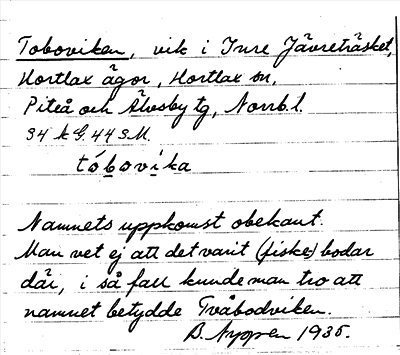 Toboviken, vik i Inre Jävreträsket,
Hortlax ägor, Hortlax sn,
Piteå och Älvsby tg, Norrb. l.
34 k G. 44 S.M
tóbovìka
Namnets uppkomst obekant.
Man vet ej att det varit (fiske) bodar
där, i så fall kunde man tro att
namnet betydde Tvåbodviken.
B. Nyppen 1935.